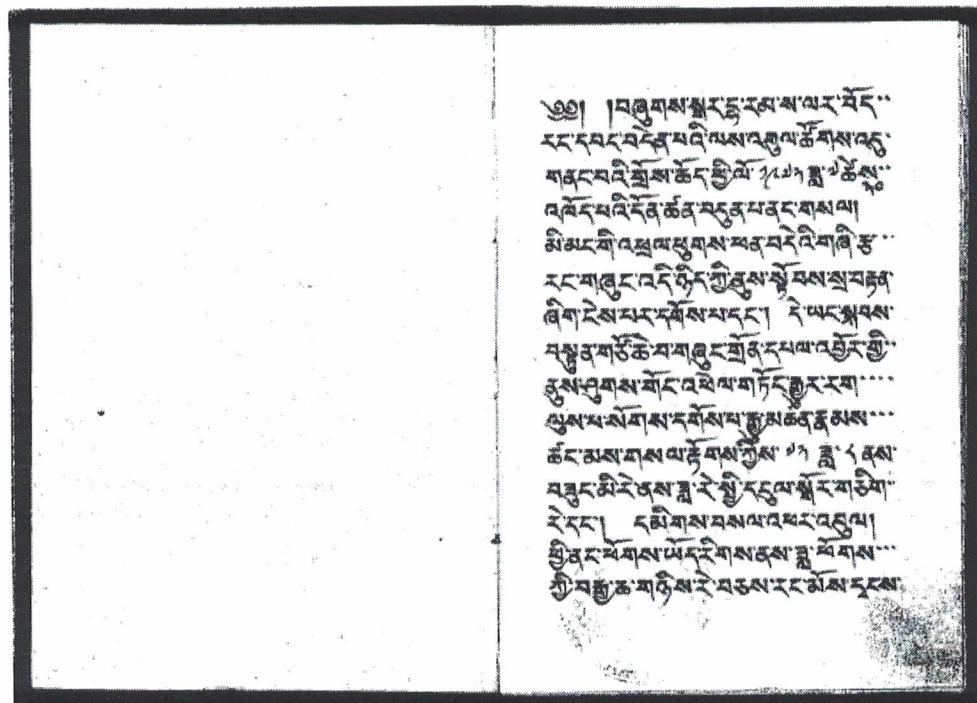 ༄༅། །བཞུགས་སྒར་དྷ་རམ་ས་ལར་བོད་་
རང་དབང་བདེན་པའི་ལས་འགུལ་ཚོགས་འདུ་
གནང་བའི་གྲོས་ཆོད་ཕྱི་ལོ་༡༩༧༢ ཟླ་༧ ཚེས་༨་
འཁོད་པའི་དོན་ཚན་བདུན་པ་ནང་གསལ།
མི་མང་གི་འཕྲལ་ཕུགས་ཕན་བདེའི་གཞི་རྩ་་་
རང་གཞུང་འདི་ཉིད་ཀྱི་ནུས་སྟོབས་སྲ་བརྟན་
ཞིག་ངེས་པར་དགོས་པ་དང༌། དེ་ཡང་སྐབས་
བསྟུན་གཙོ་ཆེ་བ་གཞུང་གྲོན་དཔལ་འབྱོར་གྱི་་
ནུས་ཤུགས་གོང་འཕེལ་གཏོང་རྒྱུར་རག་་་་
ལུས་པ་སོགས་དགོས་པ་རྒྱུ་མཚན་རྣམས་་་
ཚང་མས་གསལ་རྟོགས་ཀྱིས་ ༧༢ ཟླ་ ༨ ནས་
བཟུང་མི་རེ་ནས་ཟླ་རེ་སྤྱི་དངུལ་སྒོར་གཅིག་
རེ་དང༌། དམིགས་བསལ་འཕར་འབུལ།
ཕྱི་ནང་ཕོགས་ཡོད་རིགས་ནས་ཟླ་ཕོགས་་་
ཀྱི་བརྒྱ་ཆ་གཉིས་རེ་བཅས་རང་མོས་དྭངས་